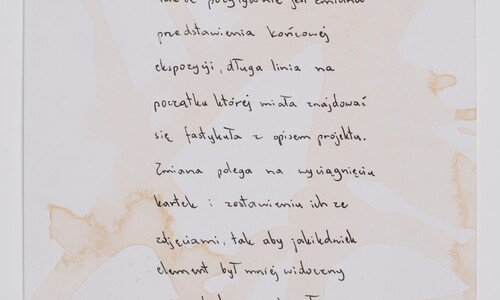 jest zmiana
przedstawienia końcowej
ekspozycji, długa linia na
początku której miała znajdować
się fastykuła z opisem projektu.
Zmiana polega na wyciągnięciu
kartek i zostawieniu ich ze
zdjęciami, tak aby jakikolwiek
element był mniej widoczny